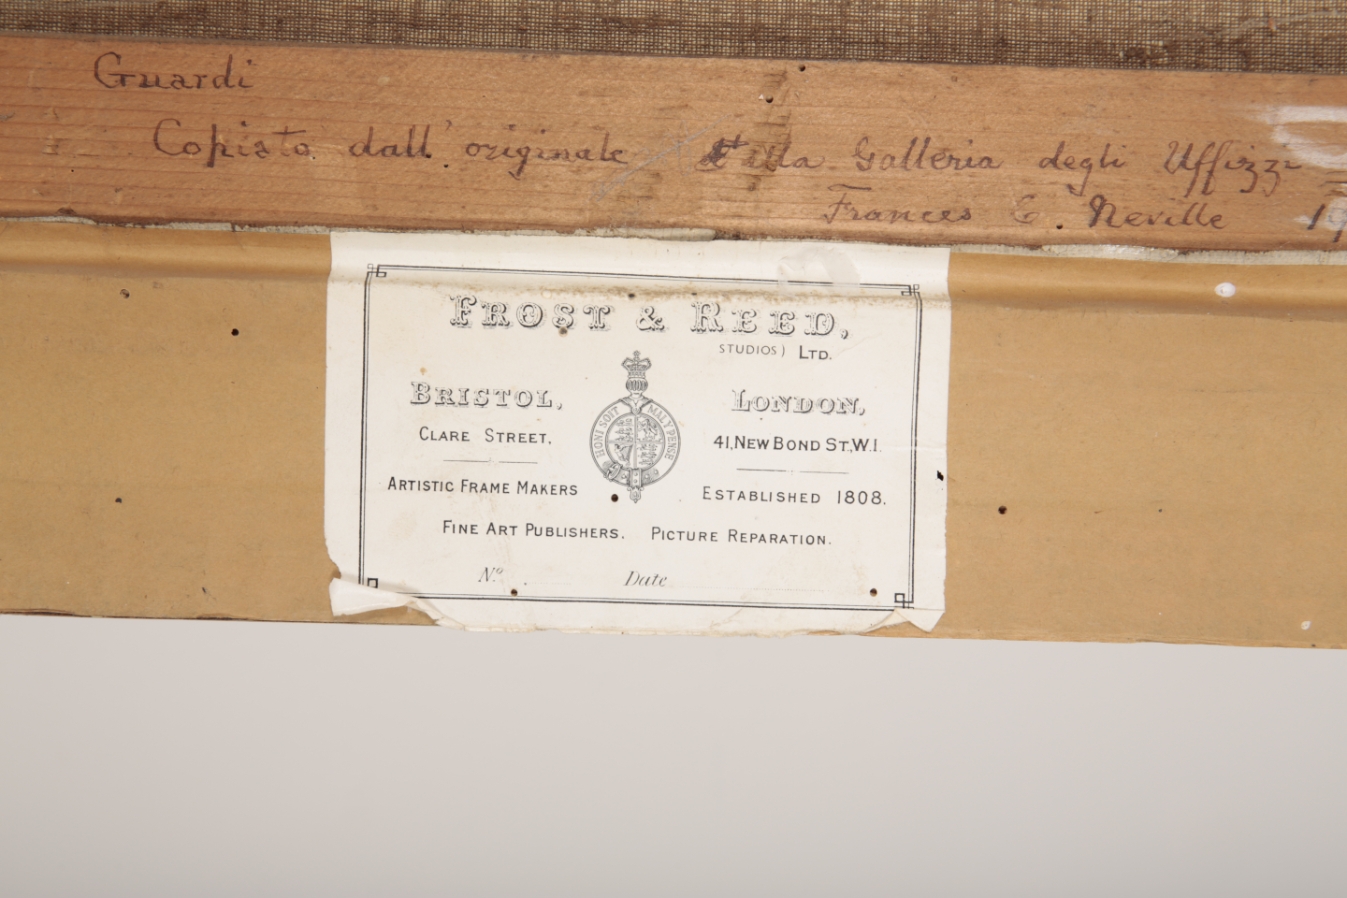 Guardi
Copisto dall' originale della Galleria degli Uffizzi
Frances E. Neville 19
FROST & REED,
STUDIOS) LTD.
BRISTOL,
CLARE STREET,
HONI SOIT MAL Y PENSE
LONDON,
41, NEW BOND ST, W.1.
ARTISTIC FRAME MAKERS
ESTABLISHED 1808.
FINE ART PUBLISHERS. PICTURE REPARATION.
No. Date